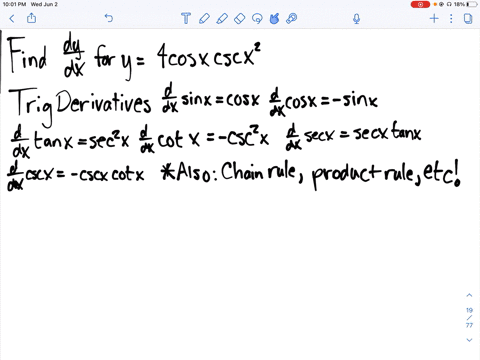 10:01 PM Wed Jun 2
18%
Find dy/dx for y = 4cosx cscx²
Trig Derivatives d/dx sinx = cosx d/dx cosx = -sinx
d/dx tanx = sec²x d/dx cot x = -csc²x d/dx secx = secx tanx
d/dx cscx = -cscx cotx *Also: Chain rule, product rule, etc!
19
/
77